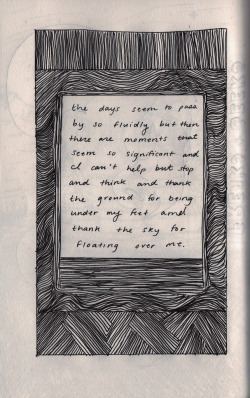 the days seem to pass
by so fluidly but then
there are moments that
seem so significant and
I can't help but stop
and think and thank
the ground for being
under my feet and
thank the sky for
floating over me.